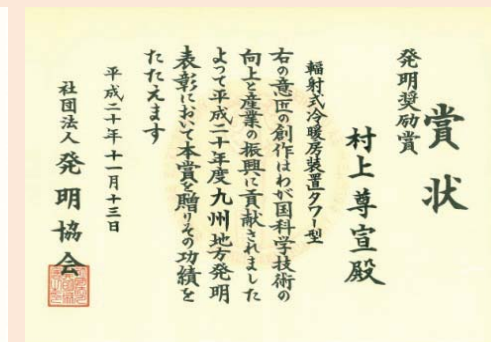 賞状
発明奨励賞
村上尊宣殿
輻射式冷暖房装置タワー型
右の意匠の創作はわが国科学技術の
向上と産業の振興に貢献されました
よつて平成二十年度九州地方発明
表彰において本賞を贈りその功績を
たたえます
平成二十年十一月十三日
社団法人発明協会